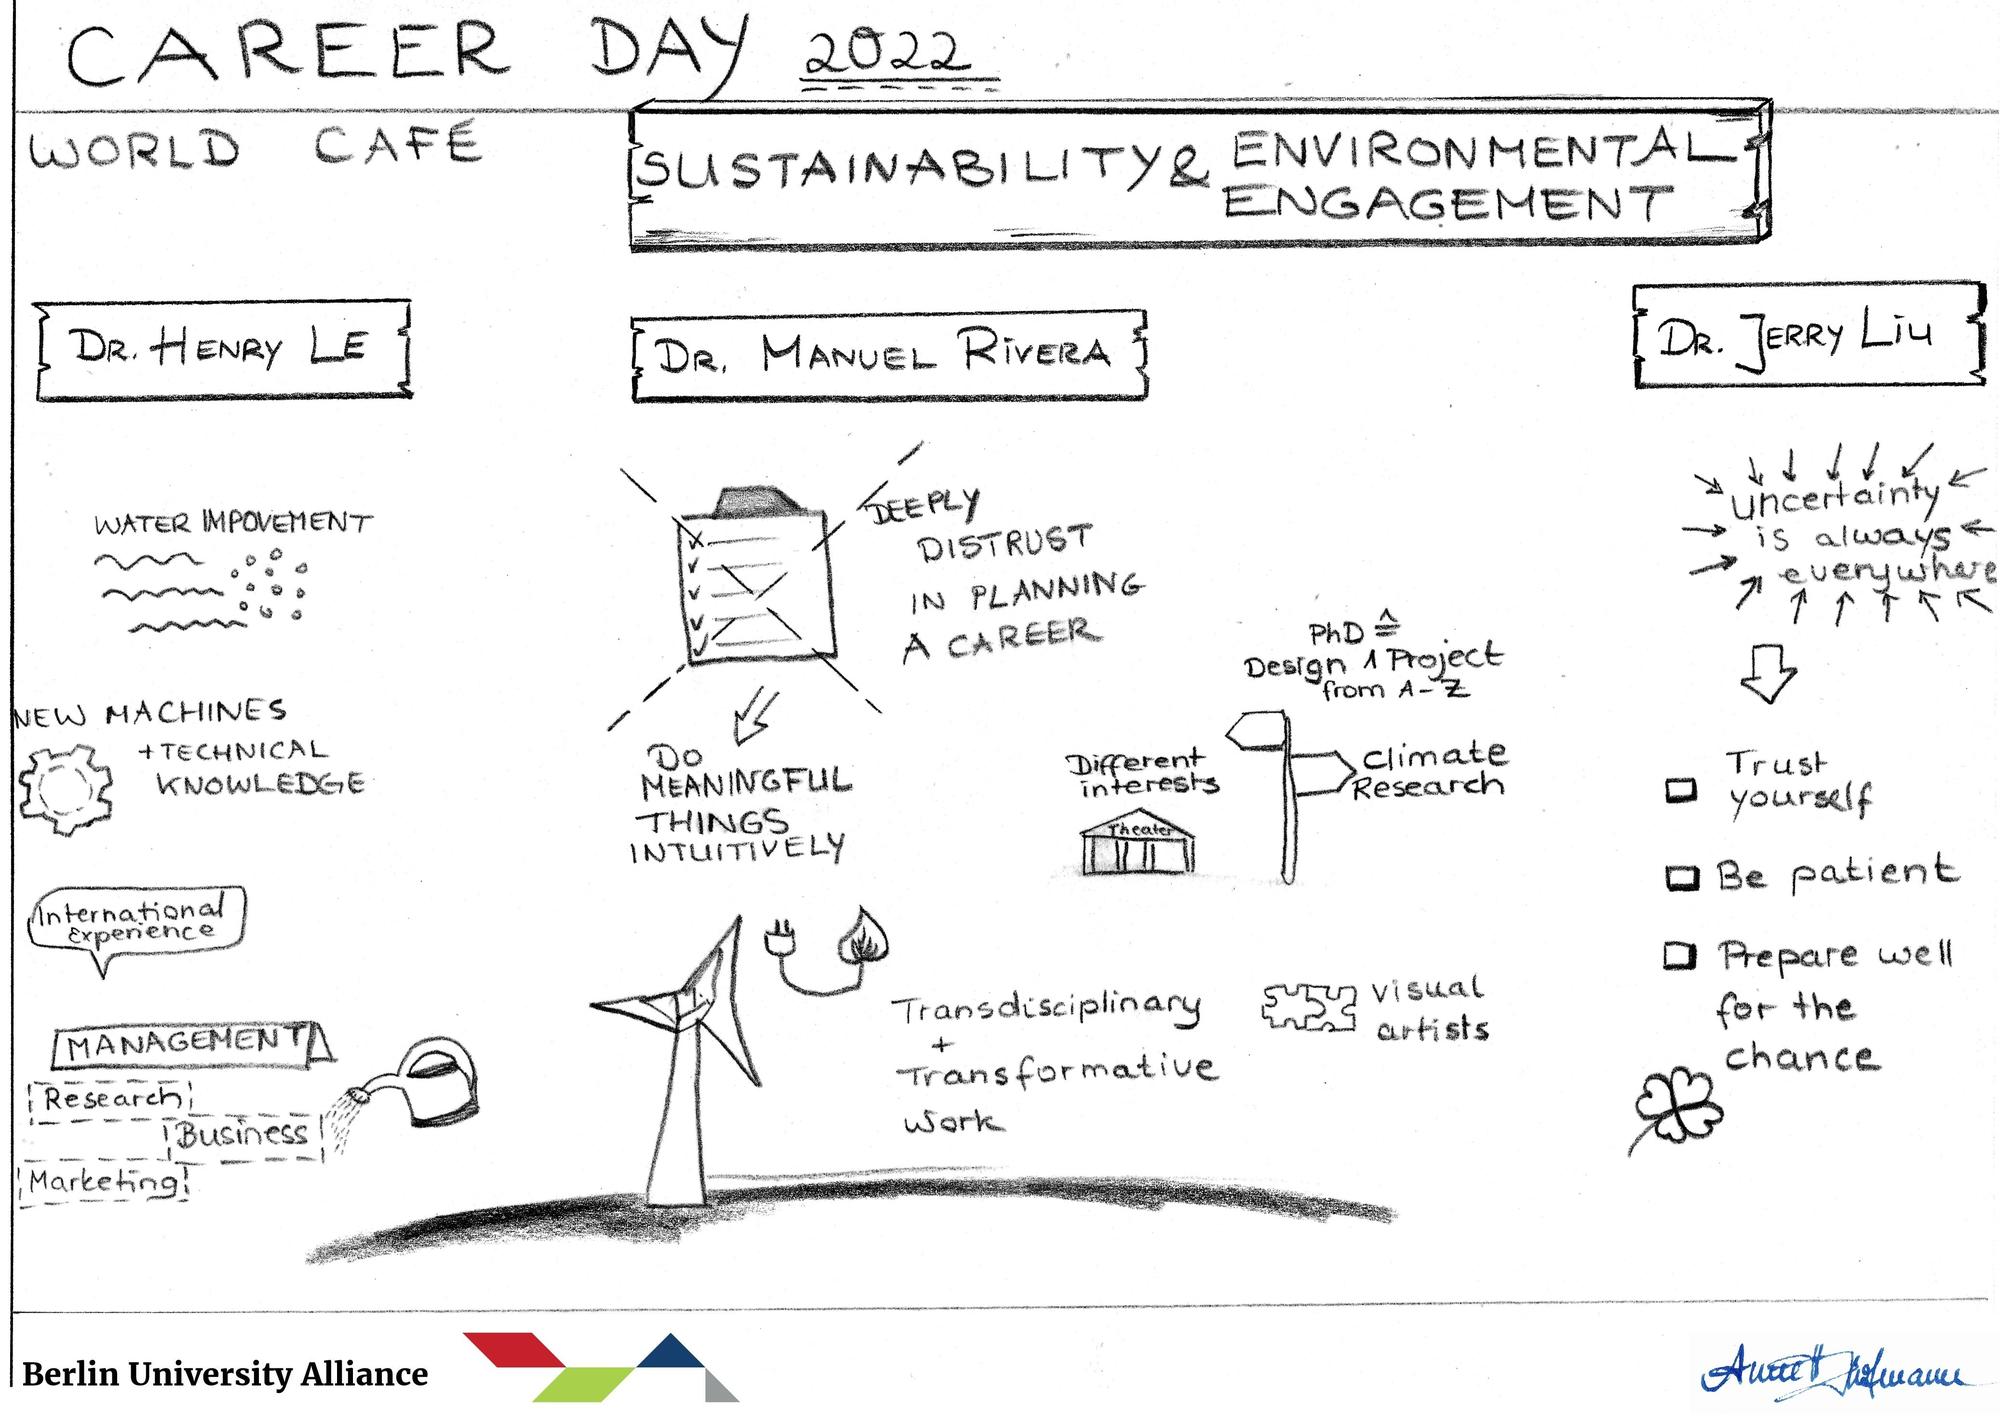 CAREER DAY 2022
WORLD CAFÉ
SUSTAINABILITY & ENVIRONMENTAL
ENGAGEMENT
DR. HENRY LE
WATER IMPOVEMENT
NEW MACHINES
+ TECHNICAL
KNOWLEDGE
International
Experience
MANAGEMENT
Research
Business
Marketing
DR. MANUEL RIVERA
DEEPLY
DISTRUST
IN PLANNING
A CAREER
DO
MEANINGFUL
THINGS
INTUITIVELY
PhD ≙
Design 1 Project
from A-Z
Different
interests
Theater
Climate
Research
Transdisciplinary
+
Transformative
work
visual
artists
DR. JERRY LIU
uncertainty
is always
everywhere
Trust
yourself
Be patient
Prepare well
for the
chance
Berlin University Alliance